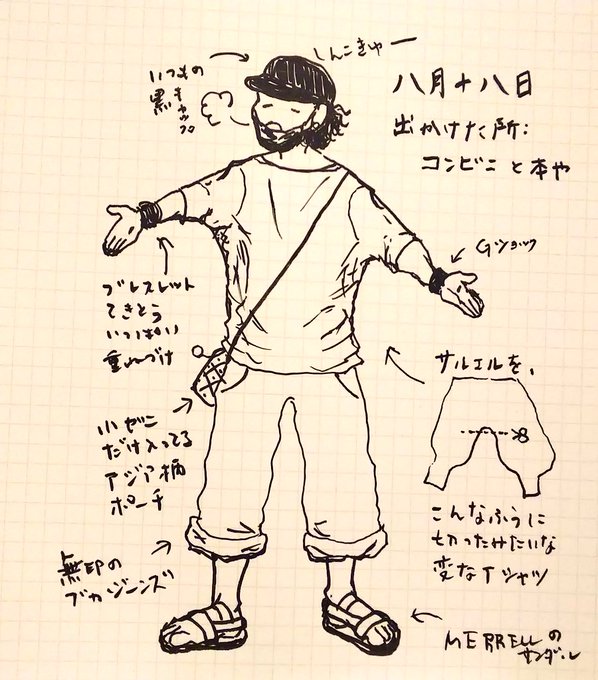 しんこきゅー
いつもの
黒キャップ
八月十八日
出かけた所:
コンビニと本や
Gショック
ブレスレット
てきとう
いっぱい
重ねづけ
サルエルを、
小ゼニ
だけ入ってる
アジア柄
ポーチ
こんなふうに
切ったみたいな
変なTシャツ
無印の
ブカジーンズ
MERRELLの
サンダル